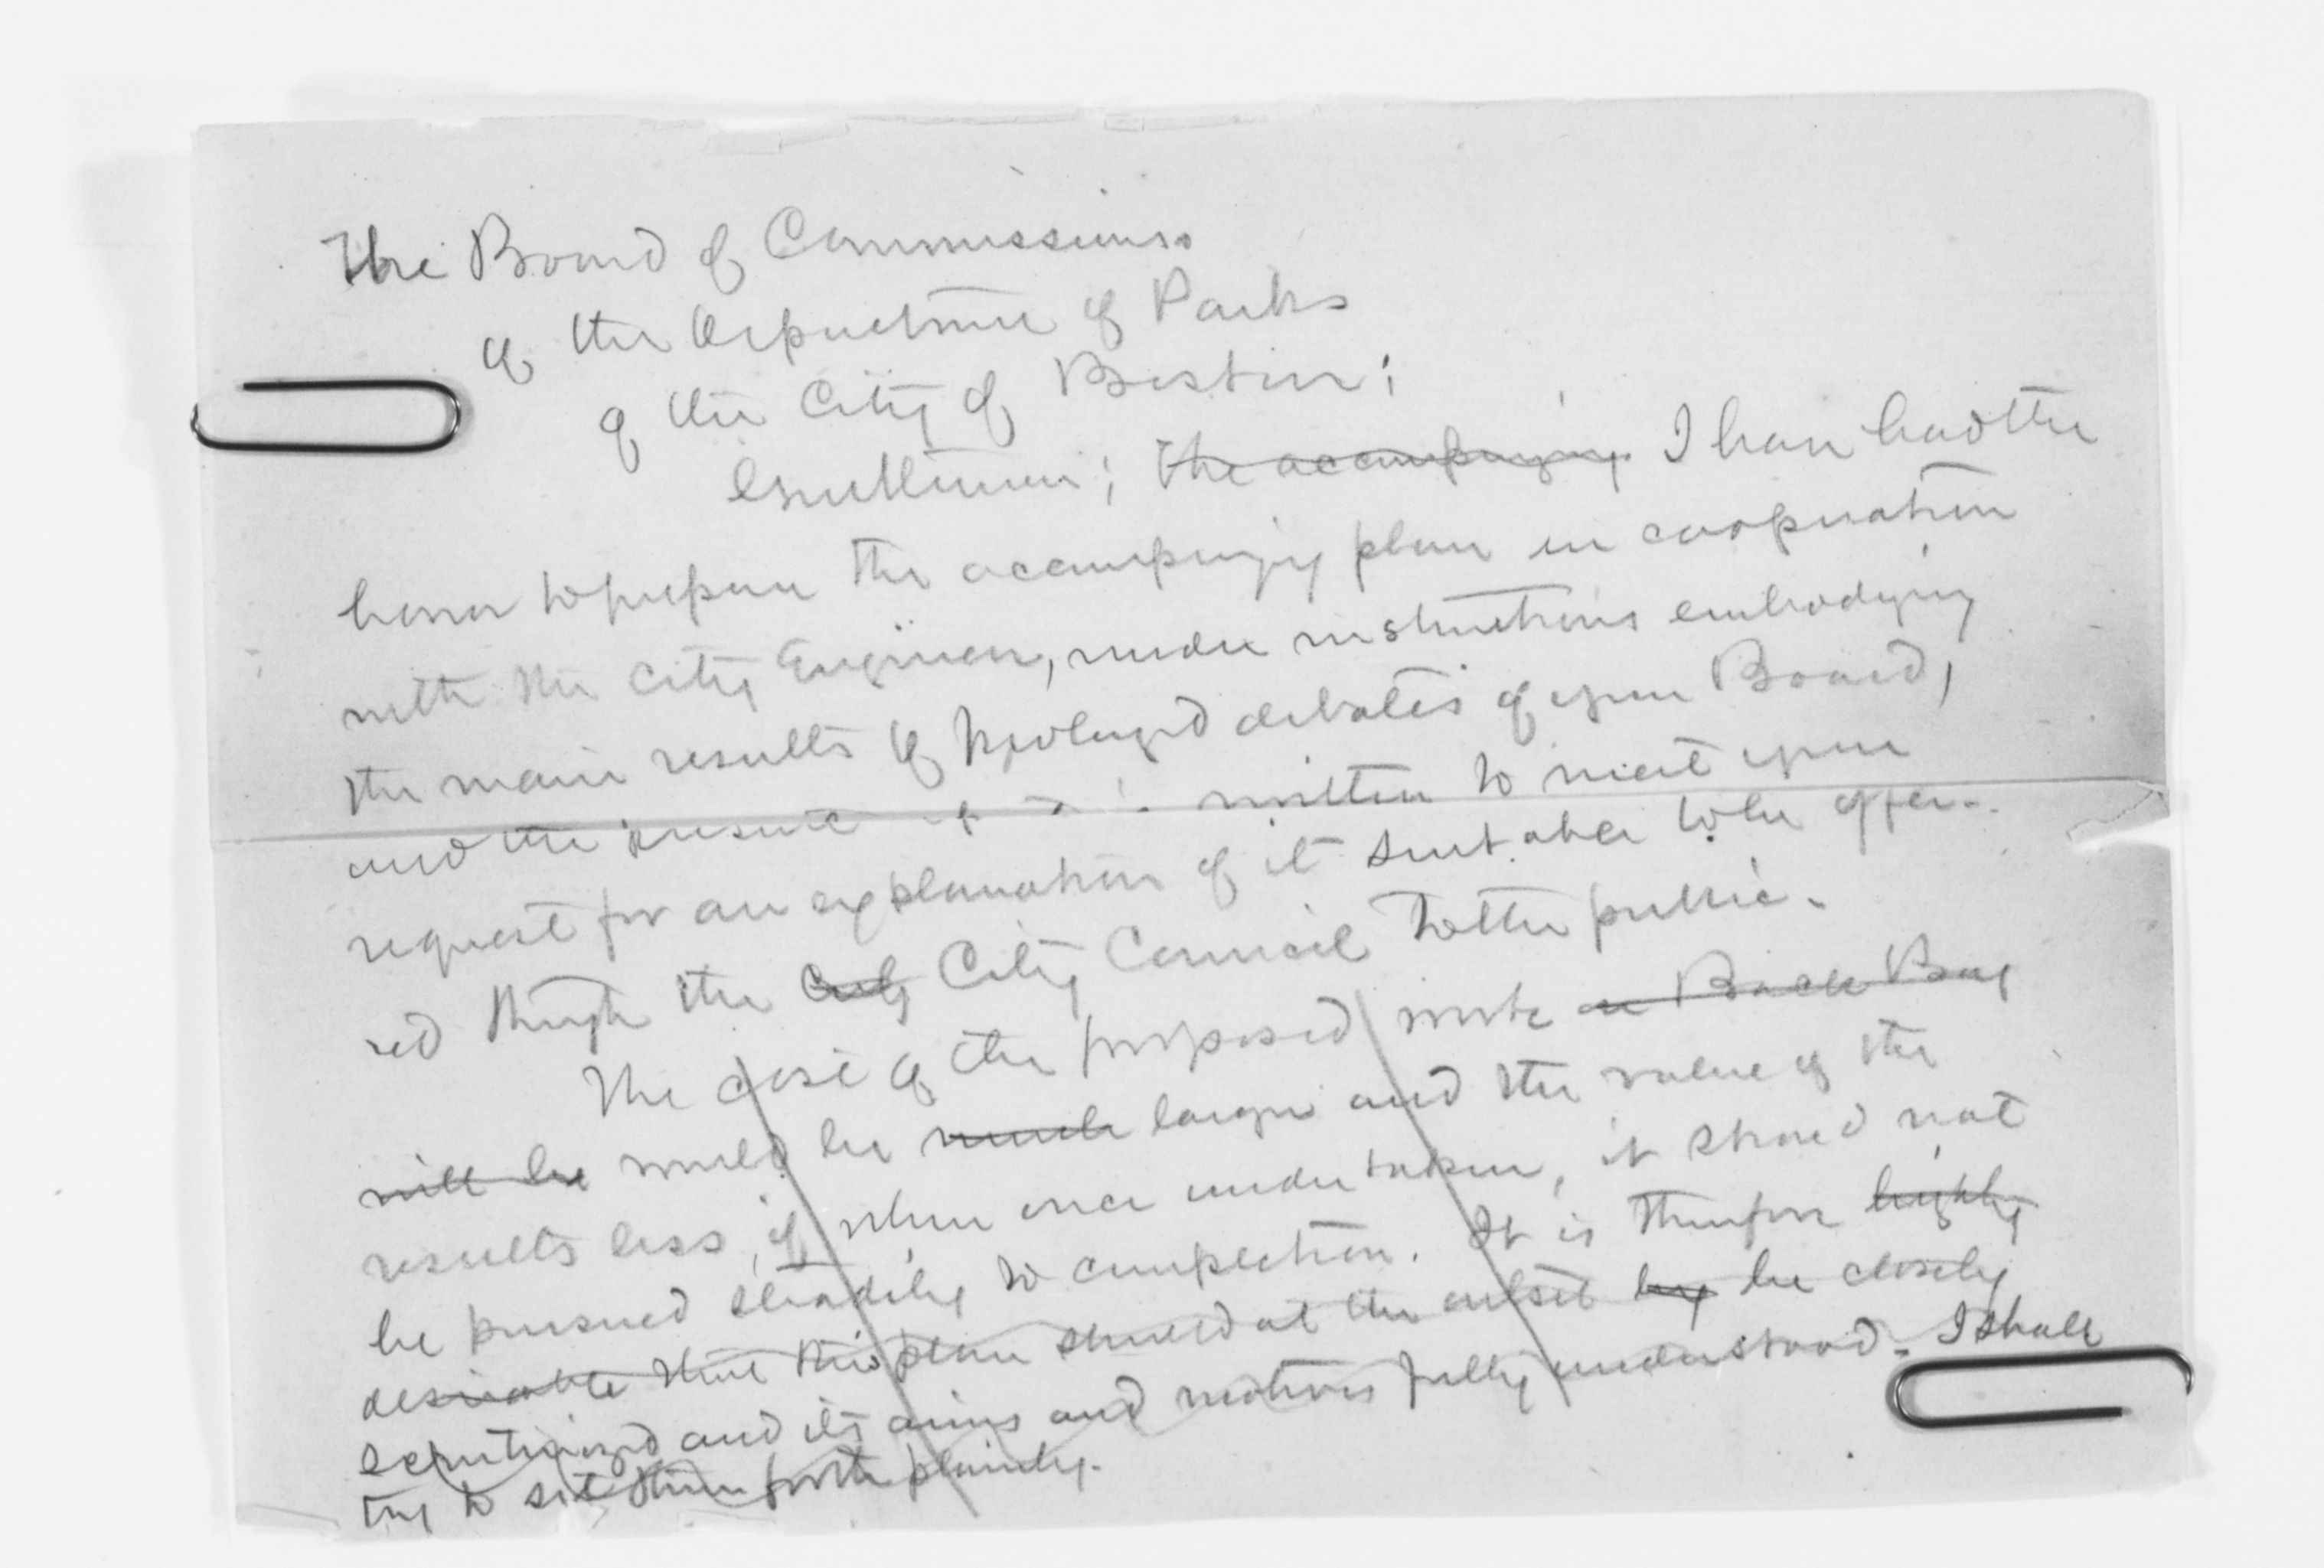 The Board of Commissioners
of the Department of Parks
of the City of Boston:
Gentlemen; The accompanying I have had the
honor to prepare the accompanying plan in cooperation
with the City Engineer, under instructions embodying
the main results of prolonged debates of your Board,
and the present written to meet your
request for an explanation of it suitable to be offer-
red through the City Council to the public.
The cost of the proposed work on Back Bay
will be would be much larger and the value of the
results less, if, when once undertaken, it should not
be pursued steadily to completion. It is therefore highly
desirable that this plan should at the outset be closely
scrutinized and its aims and motives fully understood. I shall
try to set them forth plainly.